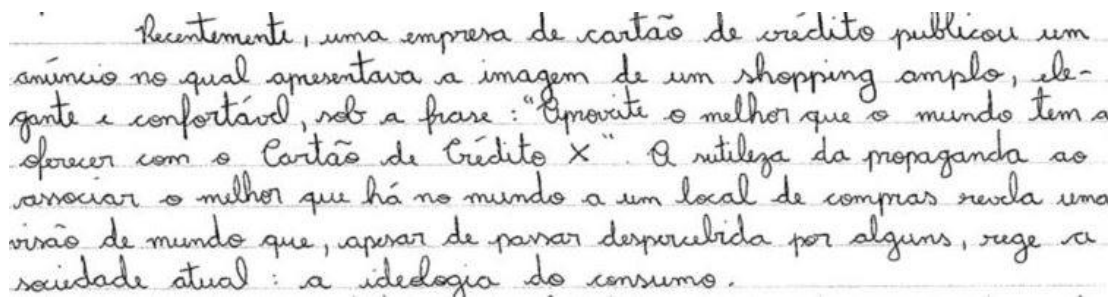 Recentemente, uma empresa de cartão de crédito publicou um
anúncio no qual apresentava a imagem de um shopping amplo, ele-
gante e confortável, sob a frase: "Aproveite o melhor que o mundo tem a
oferecer com o Cartão de Crédito X". A sutileza da propaganda ao
associar o melhor que há no mundo a um local de compras revela uma
visão de mundo que, apesar de passar despercebida por alguns, rege a
sociedade atual: a ideologia do consumo.